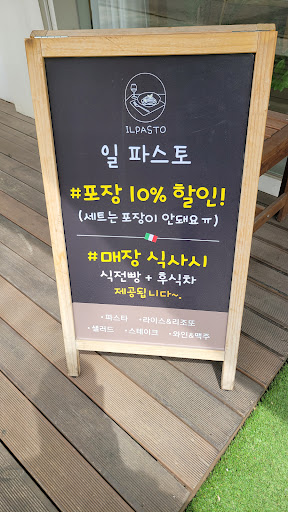 ILPASTO
일 파스토
#포장 10% 할인!
(세트는 포장이 안돼요ㅠ)
#매장 식사시
식전빵 + 후식차
제공됩니다~.
•파스타 •라이스&리조또
•샐러드 •스테이크 •와인&맥주